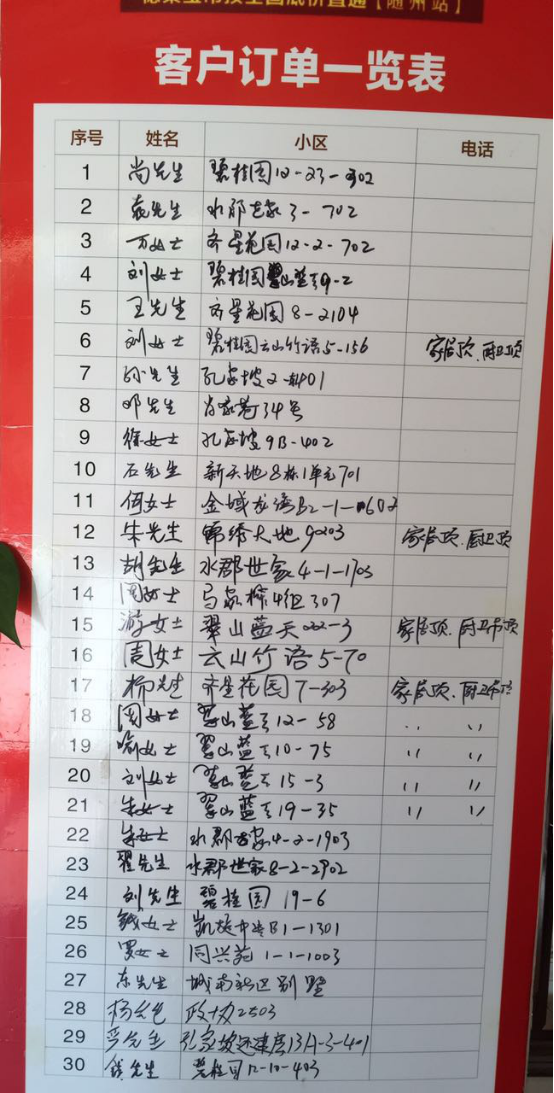 全国底价直通【随州站】
客户订单一览表
序号 姓名 小区 电话
1 尚先生 碧桂园12-23-902
2 袁先生 水郡世家3-702
3 万女士 齐星花园12-2-702
4 刘女士 碧桂园翠山蓝天9-2
5 王先生 齐星花园8-2104
6 刘女士 碧桂园云山竹语5-156 家居顶、厨卫顶
7 孙先生 孔家坡2-401
8 邓先生 肖家巷34号
9 徐女士 孔家坡9B-402
10 石先生 新天地8栋1单元701
11 何女士 金城龙湾B2-1-1602
12 朱先生 锦绣大地9203 家居顶、厨卫顶
13 胡先生 水郡世家4-1-1703
14 周女士 马家榨4组307
15 游女士 翠山蓝天222-3 家居顶、厨卫吊顶
16 周女士 云山竹语5-70
17 柳先生 齐星花园7-303 家居顶、厨卫吊顶
18 周女士 翠山蓝天12-58 〃 〃
19 喻女士 翠山蓝天10-75 〃 〃
20 刘女士 翠山蓝天15-3 〃 〃
21 朱女士 翠山蓝天19-35 〃 〃
22 朱女士 水郡世家4-2-1903
23 翟先生 水郡世家8-2-2902
24 刘先生 碧桂园19-6
25 钱女士 凯旋中央B1-1301
26 罗女士 同兴苑1-1-1003
27 东先生 城南新区别墅
28 杨 政协2503
29 先生 孔家坡还建房13A-3-401
30 钱先生 碧桂园12-10-403